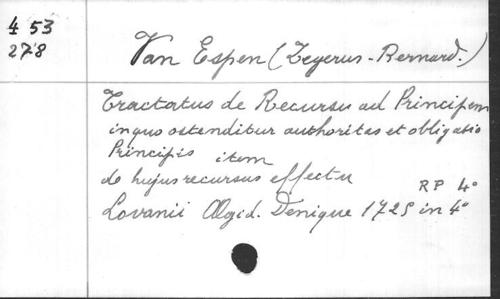 4 53
278
Van Espen (Zegerus-Bernard.)
Tractatus de Recursu ad Principem
in quo ostenditur authoritas et obligatio
Principis item
de hujus recursus effectu
RP 4°
Lovanii Aegid. Denique 1725 in 4°